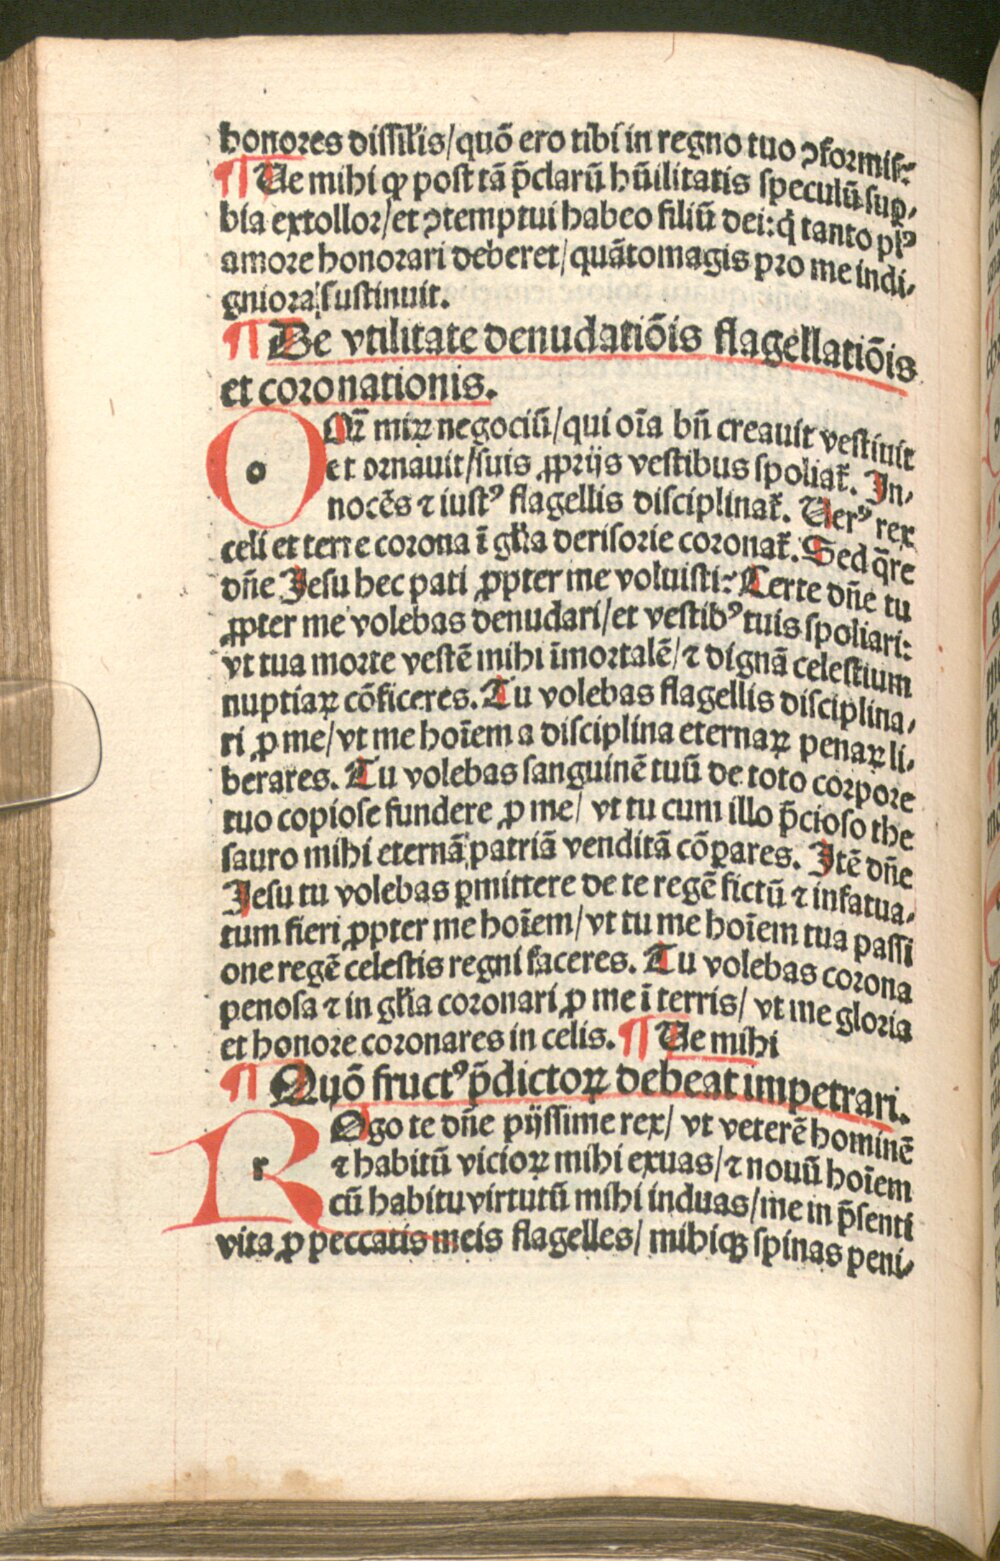 honores dissil'is/quõ ero tibi in regno tuo ꝯformis:
¶ Ue mihi ꝙ post tã p̃clarũ hũilitatis speculũ suꝑ-
bia extollor/et ꝯtemptui habeo filiũ dei: q̃ tanto plꝰ
amore honorari deberet/quãtomagis pro me indi-
gniora sustinuit.
¶ De vtilitate denudatiõis flagellatiõis
et coronationis.
O Mr̃ miꝝ negociũ/qui oĩa bñ creauit vestiuit
et ornauit/suis ꝓprijs vestibus spoliat̃. In-
nocẽs ⁊ iustꝰ flagellis disciplinat̃. Uerꝰ rex
celi et terre corona ĩ gl'ia derisorie coronat̃. Sed q̃re
dñe Jesu hec pati ꝓpter me voluisti: Certe dñe tu
ꝓpter me volebas denudari/et vestibꝰ tuis spoliari:
vt tua morte vestẽ mihi ĩmortalẽ/⁊ dignã celestium
nuptiaꝝ cõficeres. Tu volebas flagellis disciplina-
ri ꝓ me/vt me hoĩem a disciplina eternaꝝ penaꝝ li-
berares. Tu volebas sanguinẽ tuũ de toto corpore
tuo copiose fundere ꝓ me/ vt tu cum illo p̃cioso the
sauro mihi eternã patriã venditã cõꝑares. Itẽ dñe
Jesu tu volebas ꝑmittere de te regẽ fictũ ⁊ infatua-
tum fieri ꝓpter me hoĩem/vt tu me hoĩem tua passi
one regẽ celestis regni faceres. Tu volebas corona
penosa ⁊ in gl'ia coronari ꝓ me ĩ terris/ vt me gloria
et honore coronares in celis. ¶ Ue mihi
¶ Quõ fructꝰ p̃dictoꝝ debeat impetrari.
R Ogo te dñe pijssime rex/ vt veterẽ hominẽ
⁊ habitũ vicioꝝ mihi exuas/⁊ nouũ hoĩem
cũ habitu virtutũ mihi induas/me in p̃senti
vita ꝓ peccatis meis flagelles/ mihiqꝫ spinas peni-